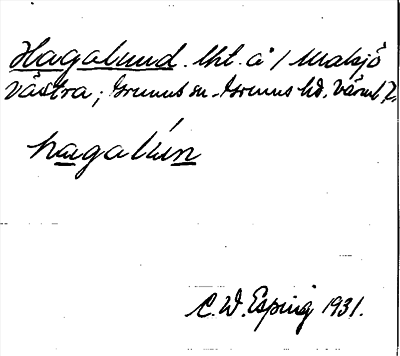 Hagalund. lht. å 1 Malsjö
västra; Grums sn. Grums hd. Värml.
hagalún
C. W. Esping 1931.